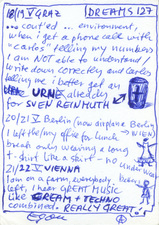 18/19 V GRAZ DREAMS 127
... cont'd ... environment,
when i get a phone call with
"carlos" telling my numbers
i am NOT able to understand /
write down correctly and carlos
telling me i better get an
URNE already
for SVEN REINMUTH
20/21 V Berlin (now airplane Berlin
→ Wien)
i left the/my office for lunch
break only wearing a long
t-shirt like a skirt - no underwear
21/22 V VIENNA
i am on a farm, everybody
left, i hear GREAT MUSIC
like CREAM + TECHNO
combined. REALLY GREAT!